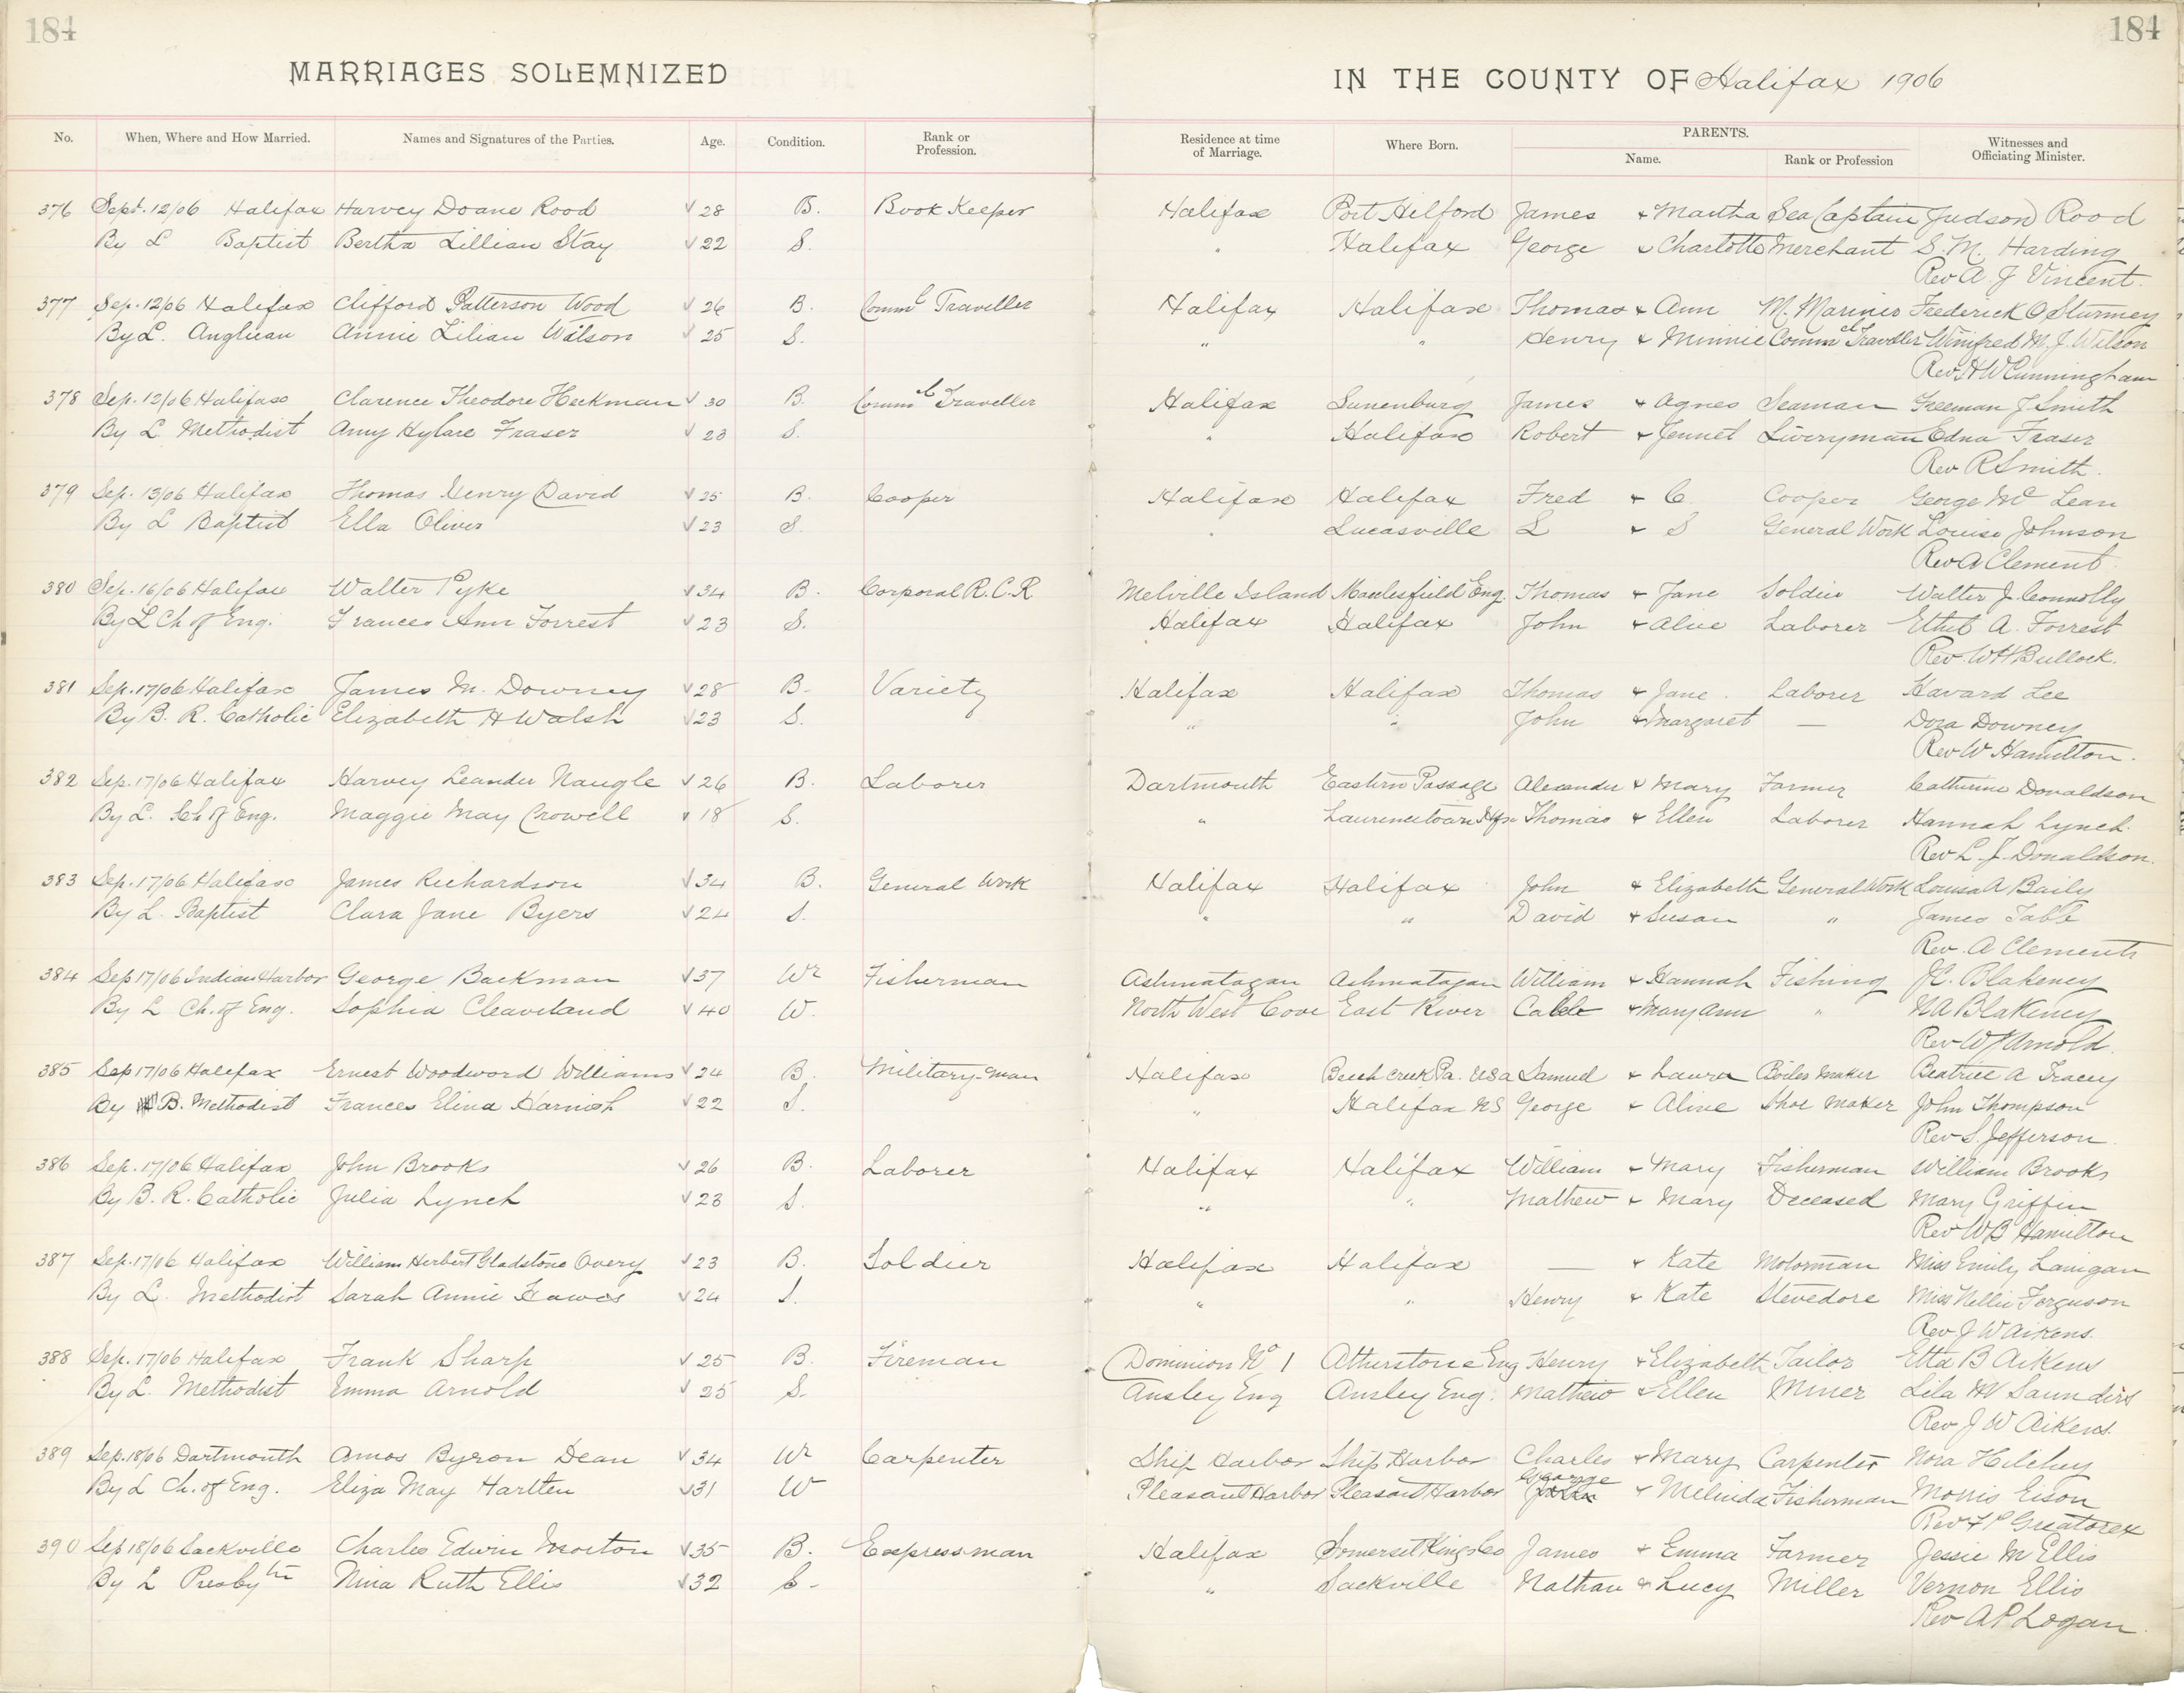 184 184
MARRIAGES SOLEMNIZED IN THE COUNTY OF Halifax 1906
No. When, Where and How Married. Names and Signatures of the Parties. Age. Condition. Rank or Profession. Residence at time of Marriage. Where Born. PARENTS. Name. Rank or Profession Witnesses and Officiating Minister.
376 Sept. 12/06 Halifax Harvey Doane Rood 28 B. Book Keeper Halifax Port Hilford James & Martha Sea Captain Judson Rood
By L Baptist Bertha Lillian Stay 22 S. " Halifax George & Charlotte Merchant S. M. Harding
Rev A J Vincent.
377 Sep. 12/06 Halifax Clifford Patterson Wood 26 B. Comm'l Traveller Halifax Halifax Thomas & Ann M. Mariner Frederick O Sturmey
By L. Anglican Annie Lilian Wilson 25 S. " " Henry & Minnie Comm'el Traveller Winifred M. J. Wilson
Rev H W Cunningham
378 Sep. 12/06 Halifax Clarence Theodore Heckman 30 B. Comm'l Traveller Halifax Lunenburg James & Agnes Seaman Freeman J Smith
By L. Methodist Amy Hylare Fraser 23 S. " Halifax Robert & Jennet Liverryman Edna Fraser
Rev R Smith.
379 Sep. 13/06 Halifax Thomas Henry David 25 B. Cooper Halifax Halifax Fred & C. Cooper George Mc Lean
By L Baptist Ella Oliver 23 S. " Lucasville L & S General Work Louise Johnson
Rev A Clement.
380 Sep. 16/06 Halifax Walter Pyke 34 B. Corporal R.C.R Melville Island Macclesfield Eng. Thomas & Jane Soldier Walter J. Connolly
By L Ch of Eng. Frances Ann Forrest 23 S. Halifax Halifax John & Alice Laborer Ethel A. Forrest
Rev. W H Bullock.
381 Sep. 17/06 Halifax James M. Downey 28 B. Variety Halifax Halifax Thomas & Jane. Laborer Havard Lee
By B. R. Catholic Elizabeth H Walsh 23 S. " " John & Margaret — Dora Downey
Rev W Hamilton.
382 Sep. 17/06 Halifax Harvey Leander Naugle 26 B. Laborer Dartmouth Eastern Passage Alexander & Mary Farmer Catherine Donaldson
By L. Ch of Eng. Maggie May Crowell 18 S. " Laurencetown Hfx Thomas & Ellen Laborer Hannah Lynch.
Rev L. J. Donaldson.
383 Sep. 17/06 Halifax James Richardson 34 B. General Work Halifax Halifax John & Elizabeth General Work Louisa A Baily
By L. Baptist Clara Jane Byers 24 S. " " David & Susan " James Tabb
Rev. A Clements
384 Sep 17/06 Indian Harbor George Backman 37 Wr Fisherman Ashmatagan Ashmatagan William & Hannah Fishing J C. Blakeney
By L Ch. of Eng. Sophia Cleaveland 40 W. North West Cove East River Caleb & Mary Ann " N A Blakeney
Rev W J Arnold.
385 Sep 17/06 Halifax Ernest Woodword Williams 24 B. Military-man Halifax Beech Creek Pa. USA Samuel & Laura Boiler Maker Beatrice A Tracey
By B. Methodist Frances Elina Harnish 22 S. " Halifax NS George & Aline Shoe Maker John Thompson
Rev S. Jefferson.
386 Sep. 17/06 Halifax John Brooks 26 B. Laborer Halifax Halifax William & Mary Fisherman William Brooks
By B. R. Catholic Julia Lynch 23 S. " " Mathew & Mary Deceased Mary Griffin
Rev W B Hamilton
387 Sep. 17/06 Halifax William Herbert Gladstone Overy 23 B. Soldier Halifax Halifax — & Kate Motorman Miss Emily Lanigan
By L. Methodist Sarah Annie Fawes 24 S. " " Henry & Kate Stevedore Miss Nellie Ferguson
Rev J W Aikens.
388 Sep. 17/06 Halifax Frank Sharp 25 B. Fireman Dominion No 1 Atherstone Eng Henry & Elizabeth Tailor Etta B Aikens
By L. Methodist Emma Arnold 25 S. Ansley Eng Ansley Eng. Mathew & Ellen Miner Lila M Saunders
Rev J W Aikens.
389 Sep. 18/06 Dartmouth Amos Byron Dean 34 Wr Carpenter Ship Harbor Ship Harbor Charles & Mary Carpenter Nora Hilchey
By L Ch. of Eng. Eliza May Hartlen 31 W Pleasant Harbor Pleasant Harbor George & Melinda Fisherman Morris Eison
Rev F P Greatorex
390 Sep 18/06 Sackville Charles Edwin Morton 35 B. Expressman Halifax Somerset Kings Co James & Emma Farmer Jessie M Ellis
By L Presbytn Nina Ruth Ellis 32 S. " Sackville Nathan & Lucy Miller Vernon Ellis
Rev A P Logan.